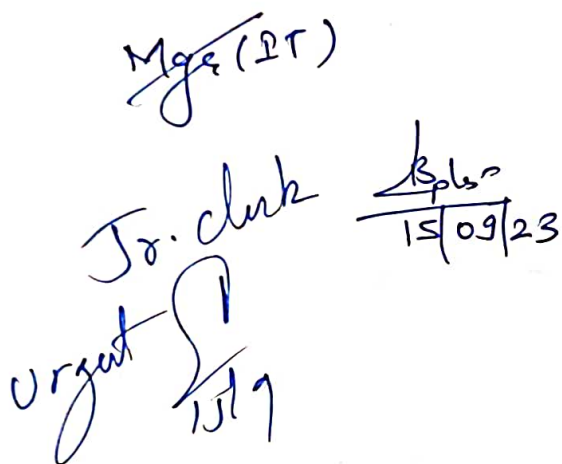 Mgr (IT)
Jr. clerk
15/09/23
urgent
15/9